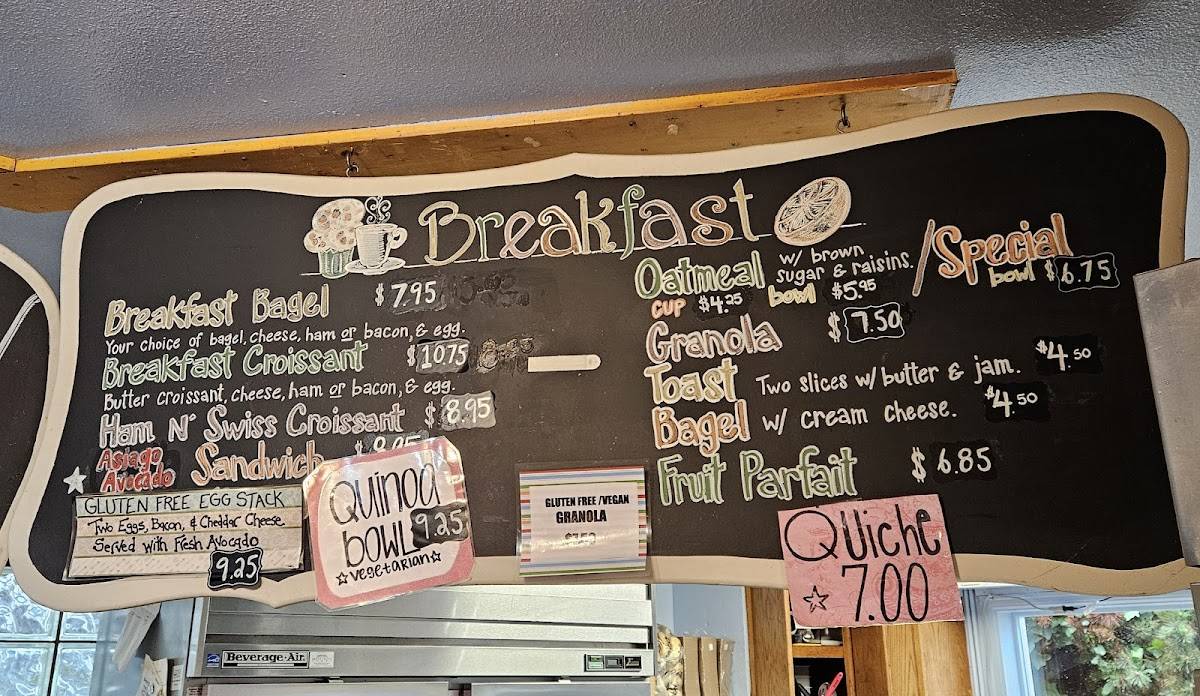 Breakfast
Breakfast Bagel $7.95
Your choice of bagel, cheese, ham or bacon, & egg.
Breakfast Croissant $10.75
Butter croissant, cheese, ham or bacon, & egg.
Ham N' Swiss Croissant $8.95
Asiago
Avocado Sandwich
GLUTEN FREE EGG STACK
Two Eggs, Bacon, & Cheddar Cheese
Served with Fresh Avocado
9.25
QUINOA
bOWL 9.25
☆vegetarian☆
GLUTEN FREE /VEGAN
GRANOLA
Oatmeal w/ brown
sugar & raisins.
cup $4.25 bowl $5.95
/Special
bowl $6.75
Granola $7.50
Toast Two slices w/butter & jam. $4.50
Bagel w/ cream cheese. $4.50
Fruit Parfait $6.85
Quiche
☆ 7.00
Beverage-Air